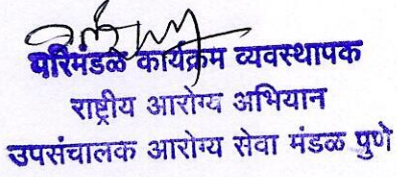 परिमंडळ कार्यक्रम व्यवस्थापक
राष्ट्रीय आरोग्य अभियान
उपसंचालक आरोग्य सेवा मंडळ पुणे